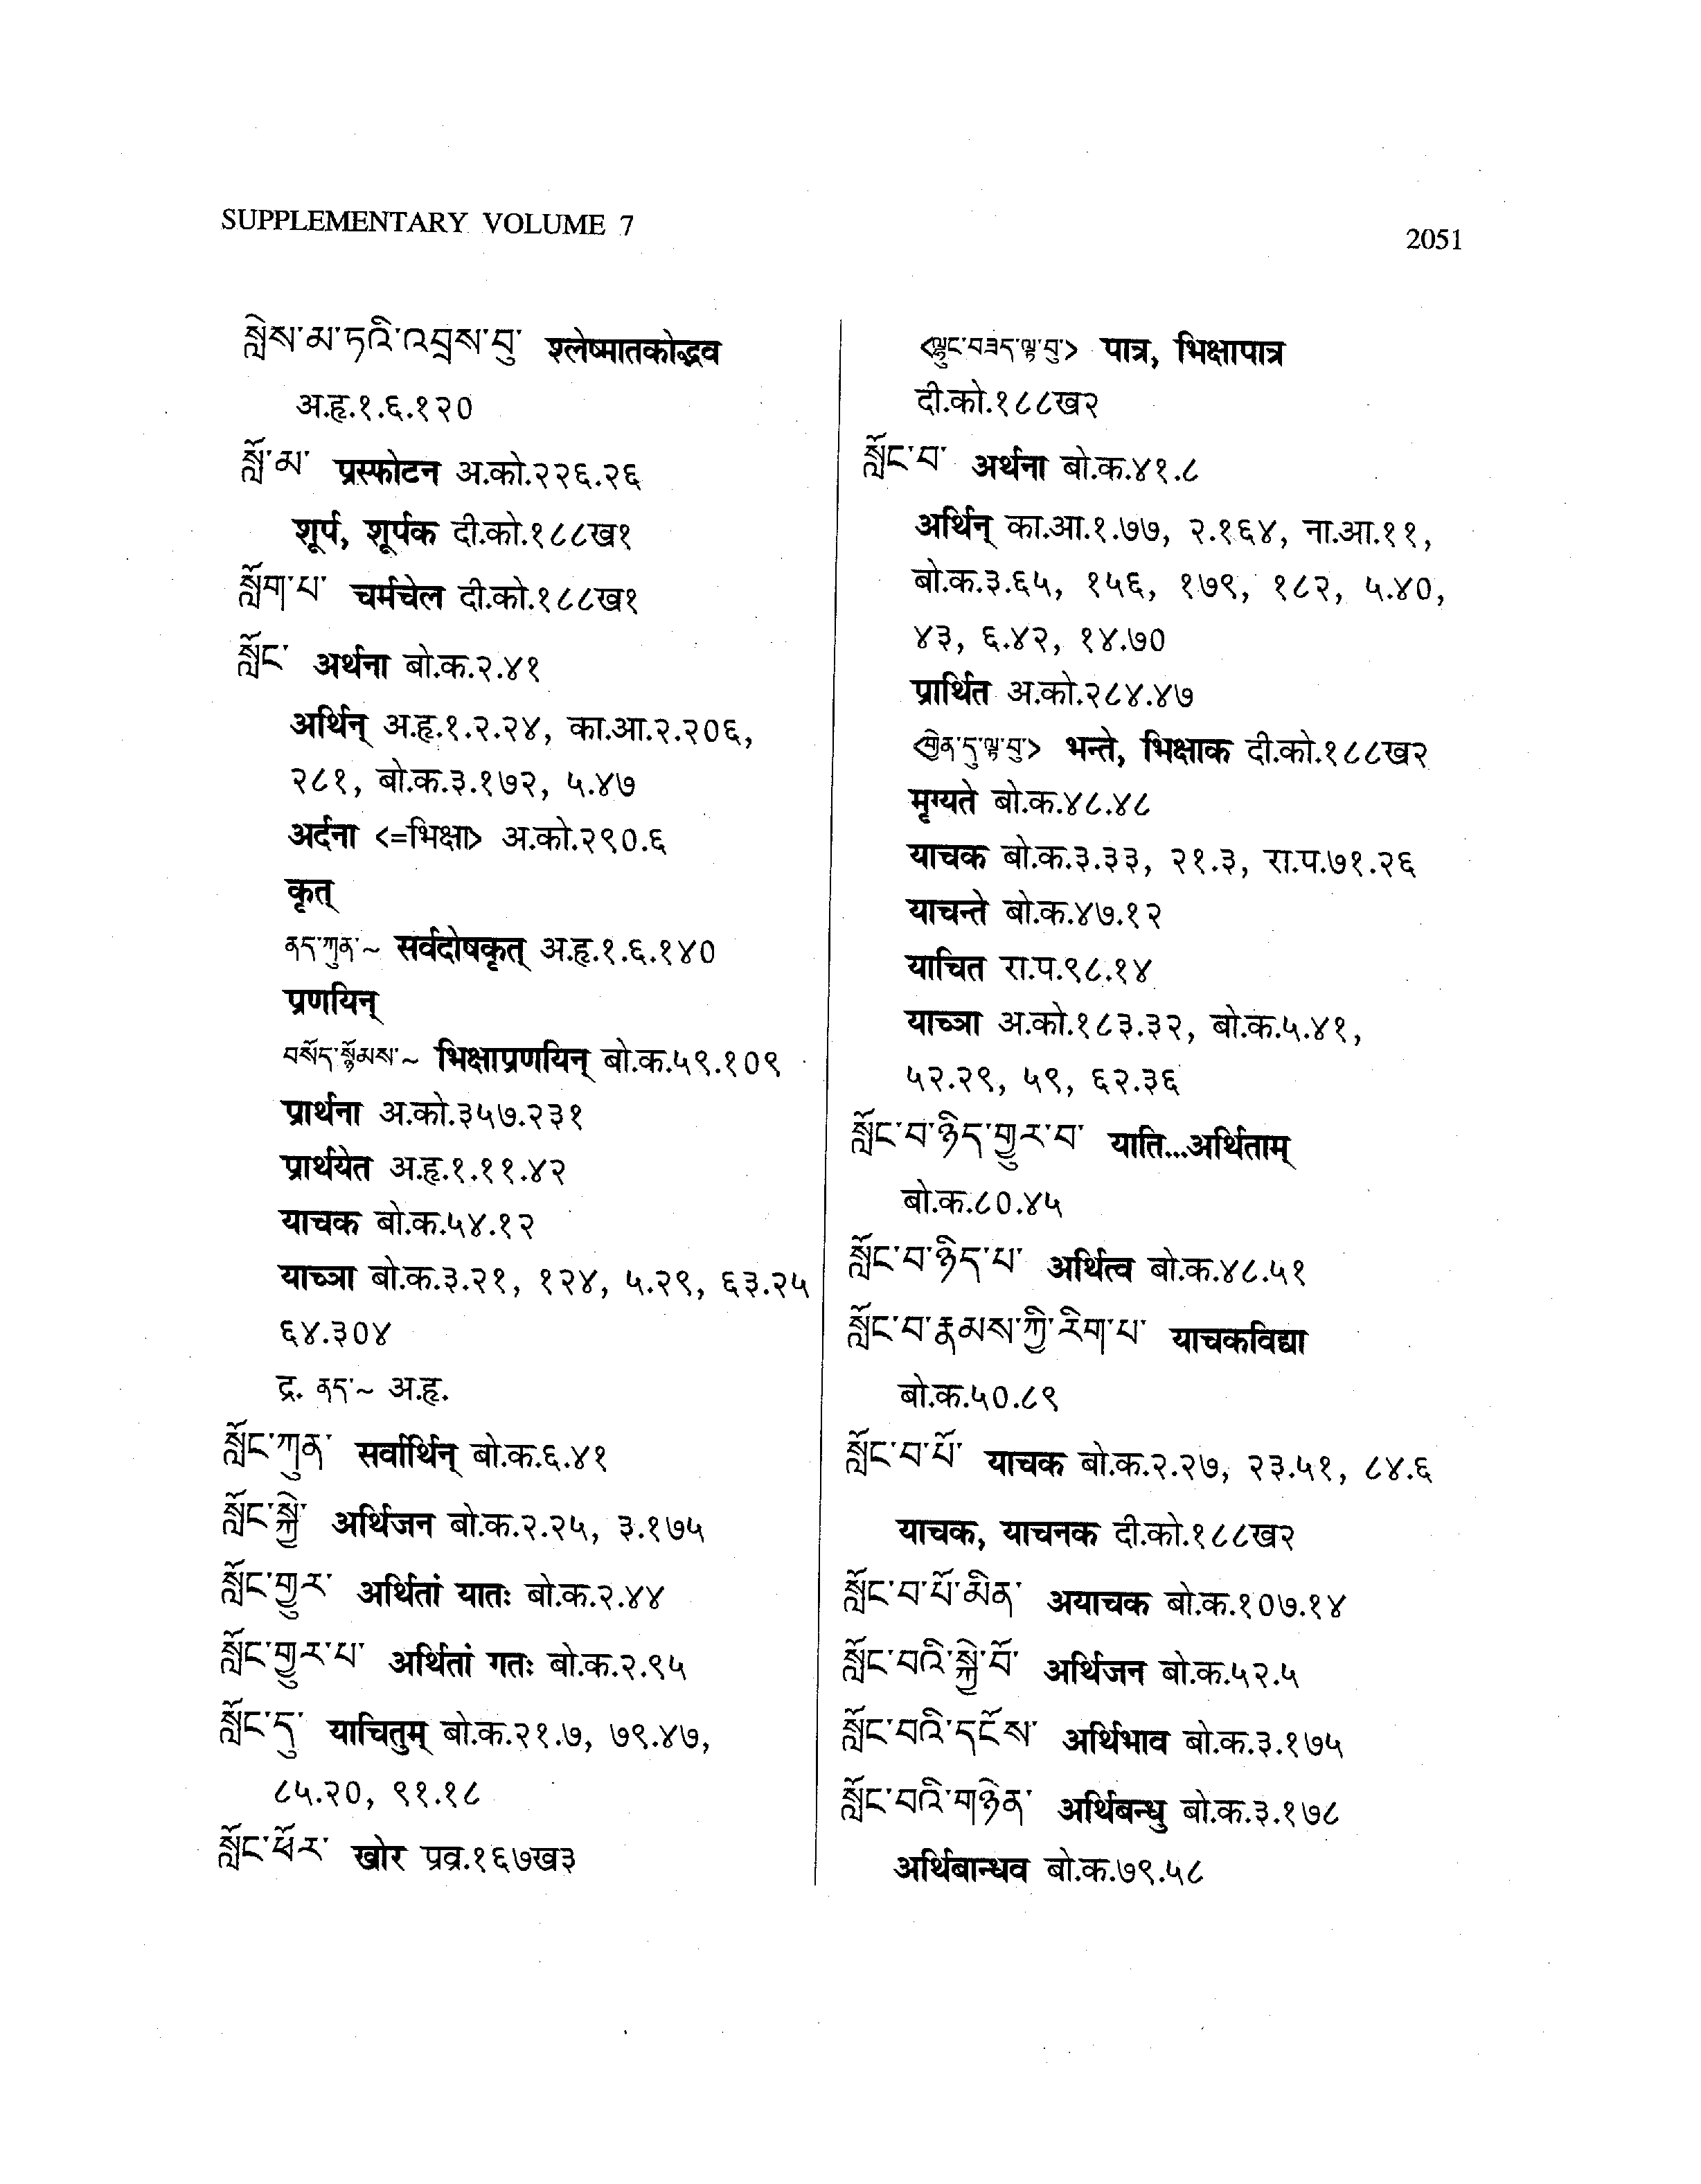 SUPPLEMENTARY VOLUME 7
2051
སླེས་མ་ཏའི་འབྲས་བུ་ श्लेष्मातकोद्भव
अ.हृ.१.६.१२०
སློ་མ་ प्रस्फोटन अ.को.२२६.२६
शूर्प, शूर्पक दी.को.१८८ख१
སློག་པ་ चर्मचेल दी.को.१८८ख१
སློང་ अर्थना बो.क.२.४१
अर्थिन् अ.हृ.१.२.२४, का.आ.२.२०६,
२८१, बो.क.३.१७२, ५.४७
अर्दना <=भिक्षा> अ.को.२९०.६
कृत्
ནད་ཀུན་~ सर्वदोषकृत् अ.हृ.१.६.१४०
प्रणयिन्
བསོད་སྙོམས་~ भिक्षाप्रणयिन् बो.क.५९.१०९
प्रार्थना अ.को.३५७.२३१
प्रार्थयेत अ.हृ.१.११.४२
याचक बो.क.५४.१२
याच्ञा बो.क.३.२१, १२४, ५.२९, ६३.२५
६४.३०४
द्र. ནད་~ अ.हृ.
སློང་ཀུན་ सर्वार्थिन् बो.क.६.४१
སློང་སྐྱེ་ अर्थिजन बो.क.२.२५, ३.१७५
སློང་གྱུར་ अर्थितां यातः बो.क.२.४४
སློང་གྱུར་པ་ अर्थितां गतः बो.क.२.९५
སློང་དུ་ याचितुम् बो.क.२१.७, ७९.४७,
८५.२०, ९१.१८
སློང་ཕོར་ खोर प्रव्र.१६७ख३
<ལྷུང་བཟད་ལྟ་བུ་> पात्र, भिक्षापात्र
दी.को.१८८ख२
སློང་བ་ अर्थना बो.क.४१.८
अर्थिन् का.आ.१.७७, २.१६४, ना.आ.११,
बो.क.३.६५, १५६, १७९, १८२, ५.४०,
४३, ६.४२, १४.७०
प्रार्थित अ.को.२८४.४७
<གྱེན་དུ་ལྟ་བུ་> भन्ते, भिक्षाक दी.को.१८८ख२
मृग्यते बो.क.४८.४८
याचक बो.क.३.३३, २१.३, रा.प.७१.२६
याचन्ते बो.क.४७.१२
याचित रा.प.९८.१४
याच्ञा अ.को.१८३.३२, बो.क.५.४१,
५२.२९, ५९, ६२.३६
སློང་བ་ཉིད་གྱུར་བ་ याति...अर्थिताम्
बो.क.८०.४५
སློང་བ་ཉིད་པ་ अर्थित्व बो.क.४८.५१
སློང་བ་རྣམས་ཀྱི་རིག་པ་ याचकविद्या
बो.क.५०.८९
སློང་བ་པོ་ याचक बो.क.२.२७, २३.५१, ८४.६
याचक, याचनक दी.को.१८८ख२
སློང་བ་པོ་མིན་ अयाचक बो.क.१०७.१४
སློང་བའི་སྐྱེ་བོ་ अर्थिजन बो.क.५२.५
སློང་བའི་དངོས་ अर्थिभाव बो.क.३.१७५
སློང་བའི་གཉེན་ अर्थिबन्धु बो.क.३.१७८
अर्थिबान्धव बो.क.७९.५८